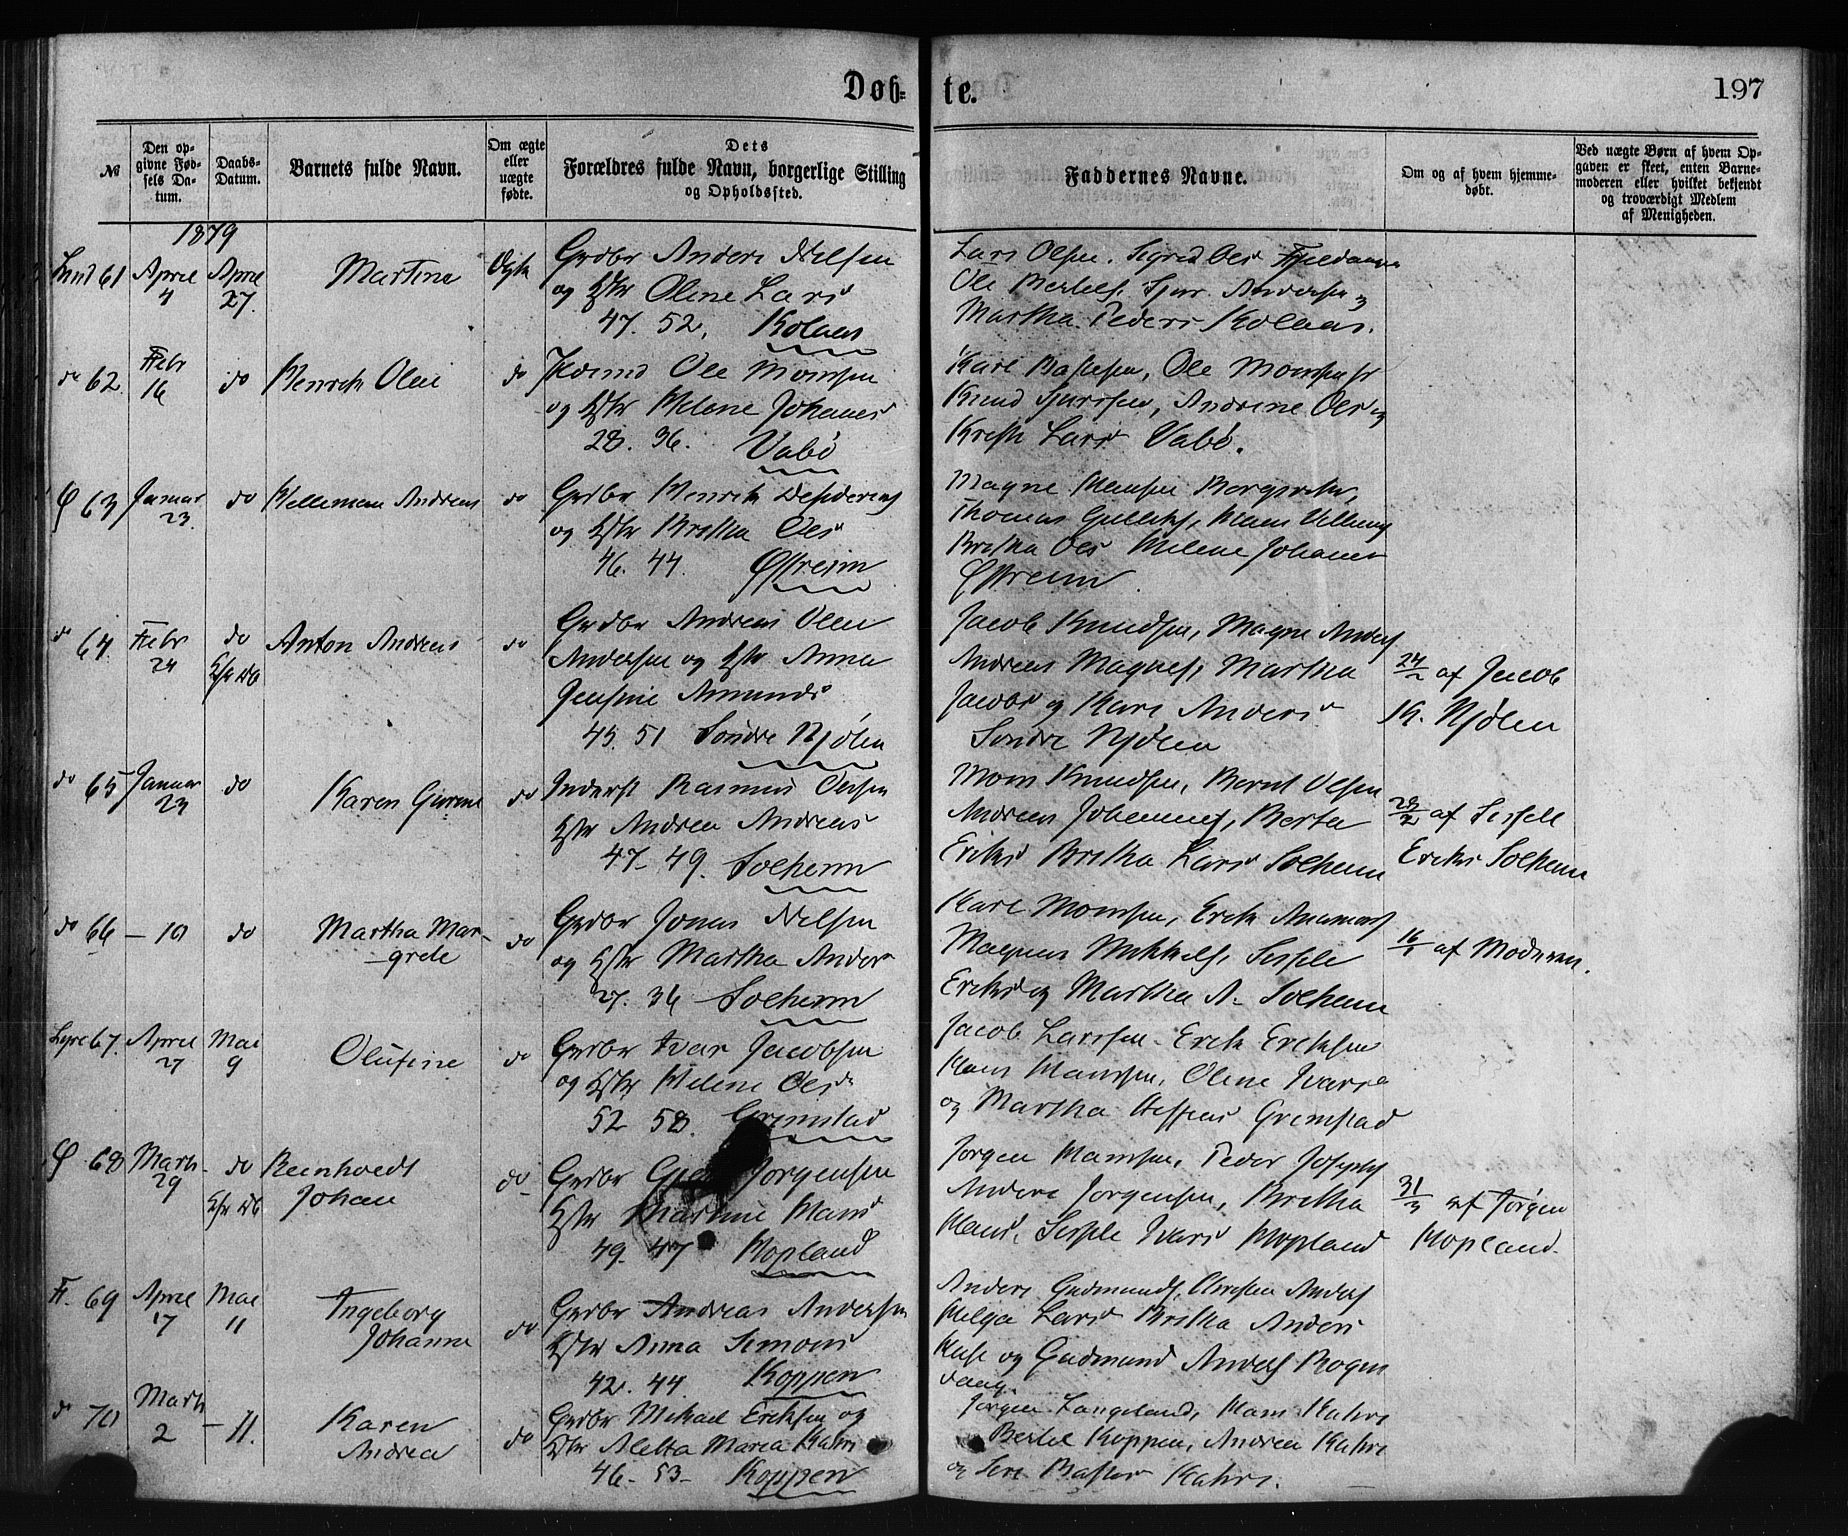 Døb-
te.
197
№
Den op-
givne Fød-
sels Da-
tum.
Daabs-
Datum.
Barnets fulde Navn.
Om ægte
eller
uægte
fødte.
Dets
Forældres fulde Navn, borgerlige Stilling
og Opholdssted.
Faddernes Navne.
Om og af hvem hjemme-
døbt.
Ved uægte Børn af hvem Op-
gaven er skeet, enten Barne-
moderen eller hvilket bekjendt
og troværdigt Medlem
af Menigheden.
1879
61 April 4
April 27.
Martina
Grdbr Anders Nilsen
og Hstr Oline Lars
47. 52. Kolaas
Lars Olsen. Sigrid Ols
Ole Bertels, Sjur Andersen og
Martha Peders Kolaas.
do 62 Febr 16
do
Henrik Olai
do
Ole Monsen
og Hstr Helene Johannes
28. 36. Vabø
Karl Bastesen, Ole Monsen
Knud Sjursen, Andrine Ols og
Lars Vabø.
63 Januar 23.
do
Andreas
do
Grdbr Henrik
og Hstr Britha Ols
46. 44. Østreim
Magne Hansen
Thomas
Britha Ols Helene Johannes
Østreim
do 64 Febr 24
do
Anton Andreas
do
Grdbr Andreas Olai
Andersen og Hstr Anna
Jensine Amunds
45. 51 Søndre Njølen
Jacob Knudsen, Magne Anders
Andreas Magnes, Martha
Jacobs og Kari Anders
Søndre Njølen
24/2 af Jacob
K. Njølen
do 65 Januar 23
do
Karen Gurine
do
Inderst Rasmus Olsen
Hstr Andrea Andreas
47-49. Solheim
Mons Knudsen, Bernt Olsen
Andreas Johannes, Berta
Eriks Britha Lars Solheim
af Sessele
Eriks Solheim
do 66 - 10
do
Martha Mar-
grete
do
Grdbr Jonas Nilsen
og Hstr Martha Anders
27. 36 Solheim
Karl Monsen, Erik
Magnus Mikkels, Sessele
Eriks og Martha A. Solheim
af Moderen.
67. April 27
Mai 9
Olufine
do
Grdbr Ivar Jacobsen
og Hstr Helene Ols
52 58. Grimstad
Jacob Larssen. Erik Eriksen
Hans Hanssen, Oline Ivars
og Martha Steffens Grimstad
68 Marts 29
do
Reinhardt
Johan
do
Grdbr Jørgensen
Hstr Martine Hans
49. 47 Hopland
Jørgen Hansen, Peder Josephs
Anders Jørgensen, Britha
Hans, Sessele Ivars Hopland
31/3 af Jørgen
Hopland.
F. 69 April 17
Mai 11
Ingeborg
Johanna
do
Grdbr Andreas Andersen
Hstr Anna Simons
42. 44. Koppen
Anders Gudmunds, Anders
Helga Lars Britha Anders
og Gudmund Anders
do 70 Marts 2
- 11.
Karen
Andrea
do
Grdbr Mikael Eriksen og
Hstr Aletta Maria Hans
46-53- Koppen
Jørgen Langeland, Hans Kahrs
Bertel Koppen, Andrea Kahrs
og Kahrs.